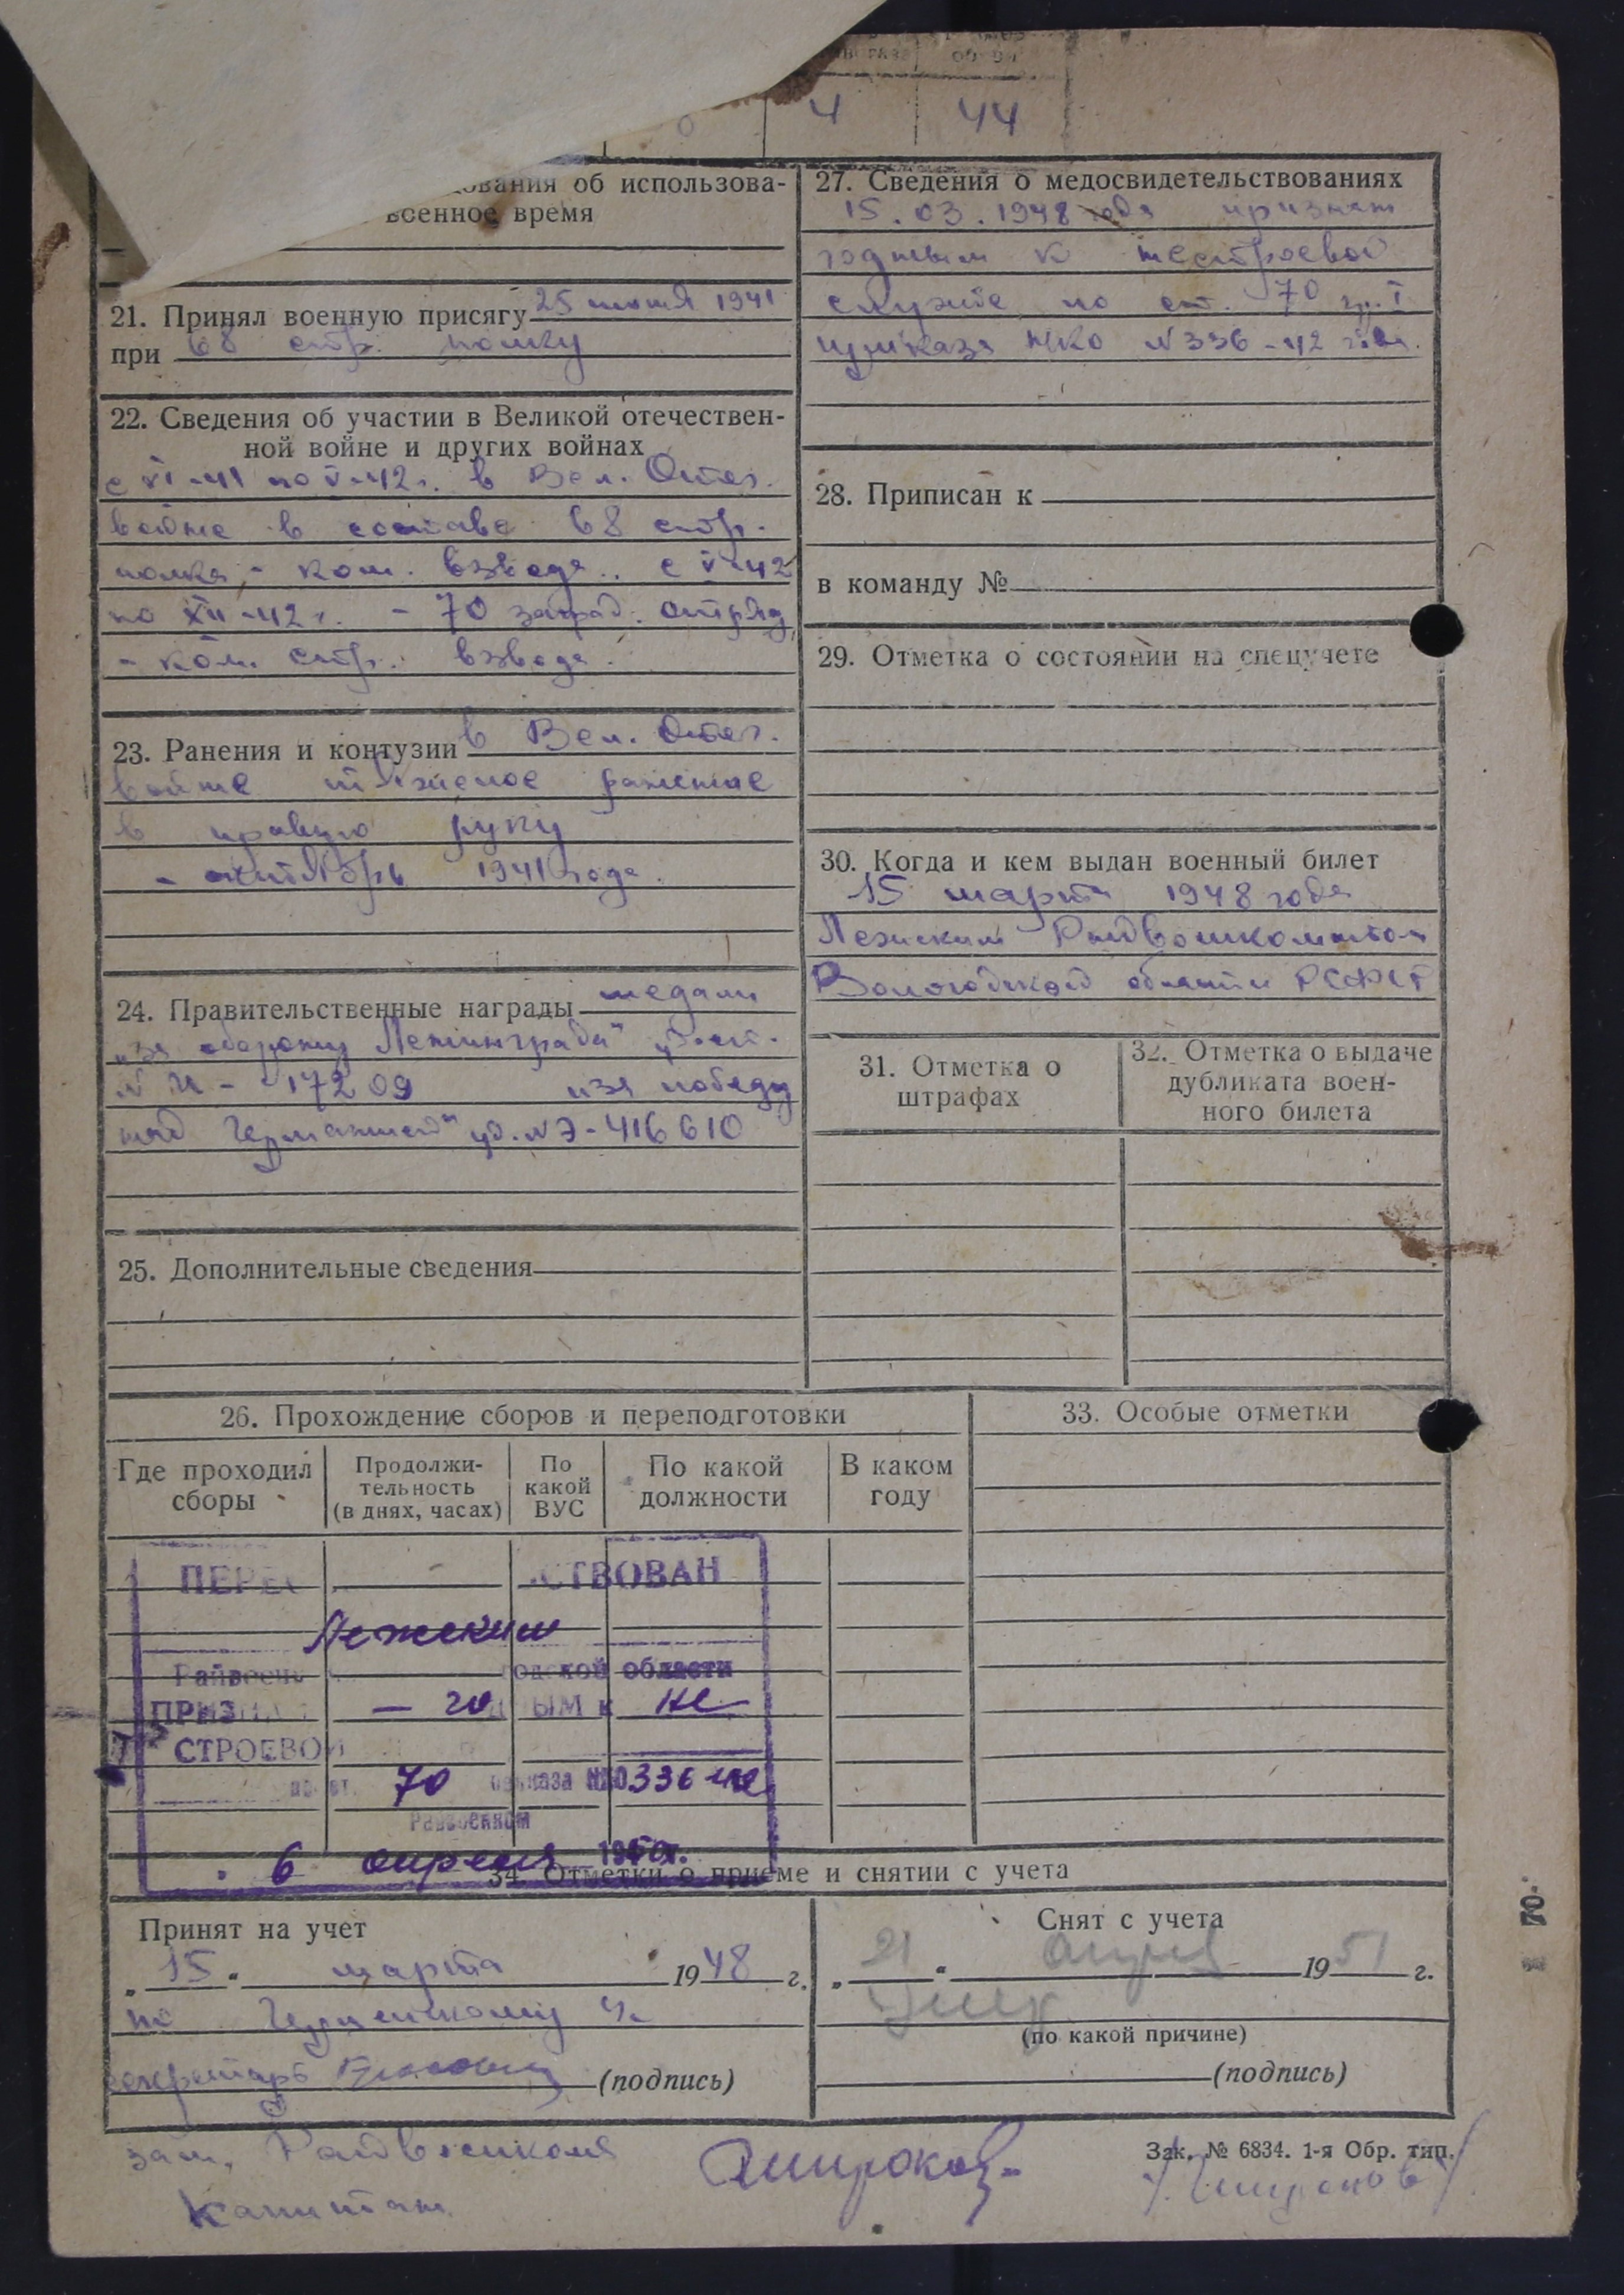 4 44
об использова-
военное время
21. Принял военную присягу 25 июня 1941
при 68 стр. полку
22. Сведения об участии в Великой отечествен-
ной войне и других войнах
с VI-41 по V-42 г. в Вел. Отеч.
войне в составе 68 стр.
полка - ком. взвода. с V-42
по XII-42 г. - 70 заград. отряд,
- ком. стр. взвода.
23. Ранения и контузии в Вел. Отеч.
войне тяжелое ранение
в правую руку
- октябрь 1941 года.
24. Правительственные награды медали
„за оборону Ленинграда"
17209 „за победу
над Германией" уд. № Э-416610
25. Дополнительные сведения
26. Прохождение сборов и переподготовки
Где проходил сборы
Продолжи-
тельность
(в днях, часах)
По
какой
ВУС
По какой
должности
В каком
году
СТВОВАН
Лежским
области
— год ЫМ к не
СТРОЕВОЙ
по ст. 70 приказа НКО 336-42
Райвоенком
6 апреля 1950 г.
27. Сведения о медосвидетельствованиях
15.03.1948 года признан
годным к нестроевой
службе по ст. 70 гр. I
приказа НКО № 336-42 года.
28. Приписан к
в команду №
29. Отметка о состоянии на спецучете
30. Когда и кем выдан военный билет
15 марта 1948 года
Лежским Райвоенкоматом
Вологодской области РСФСР
31. Отметка о
штрафах
32. Отметка о выдаче
дубликата воен-
ного билета
33. Особые отметки
34. Отметки о приеме и снятии с учета
Принят на учет
„15" марта 1948 г.
по
секретарь (подпись)
Снят с учета
„21" апреля 1951 г.
(по какой причине)
(подпись)
зам. Райвоенкома
капитан
Широков
Зак. № 6834. 1-я Обр. тип.
/Широков/
70